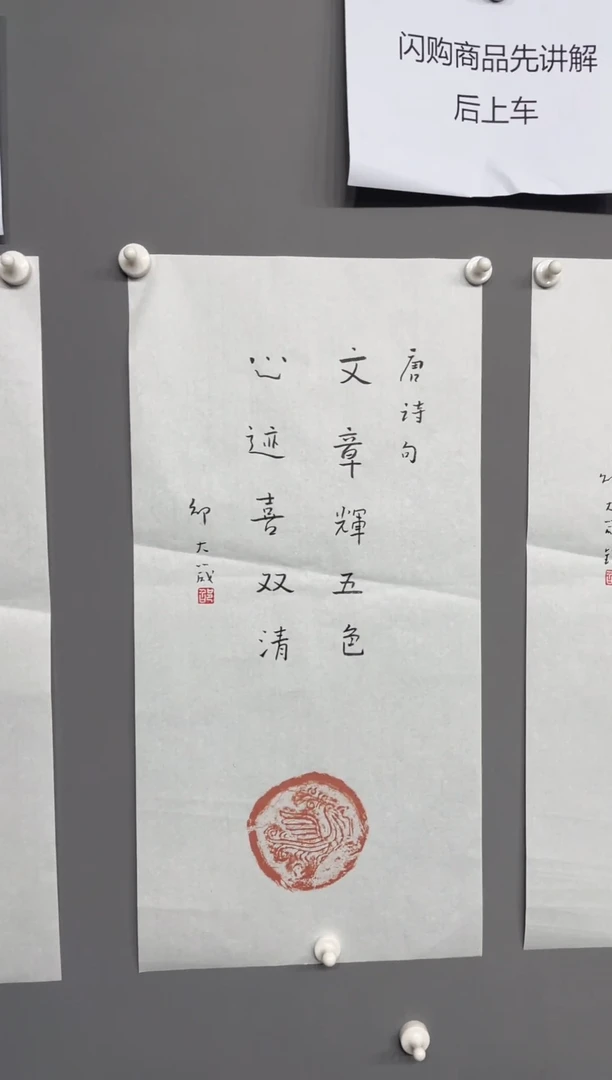 闪购商品先讲解
后上车
唐诗句
文章輝五色
心迹喜双清
邹大箴